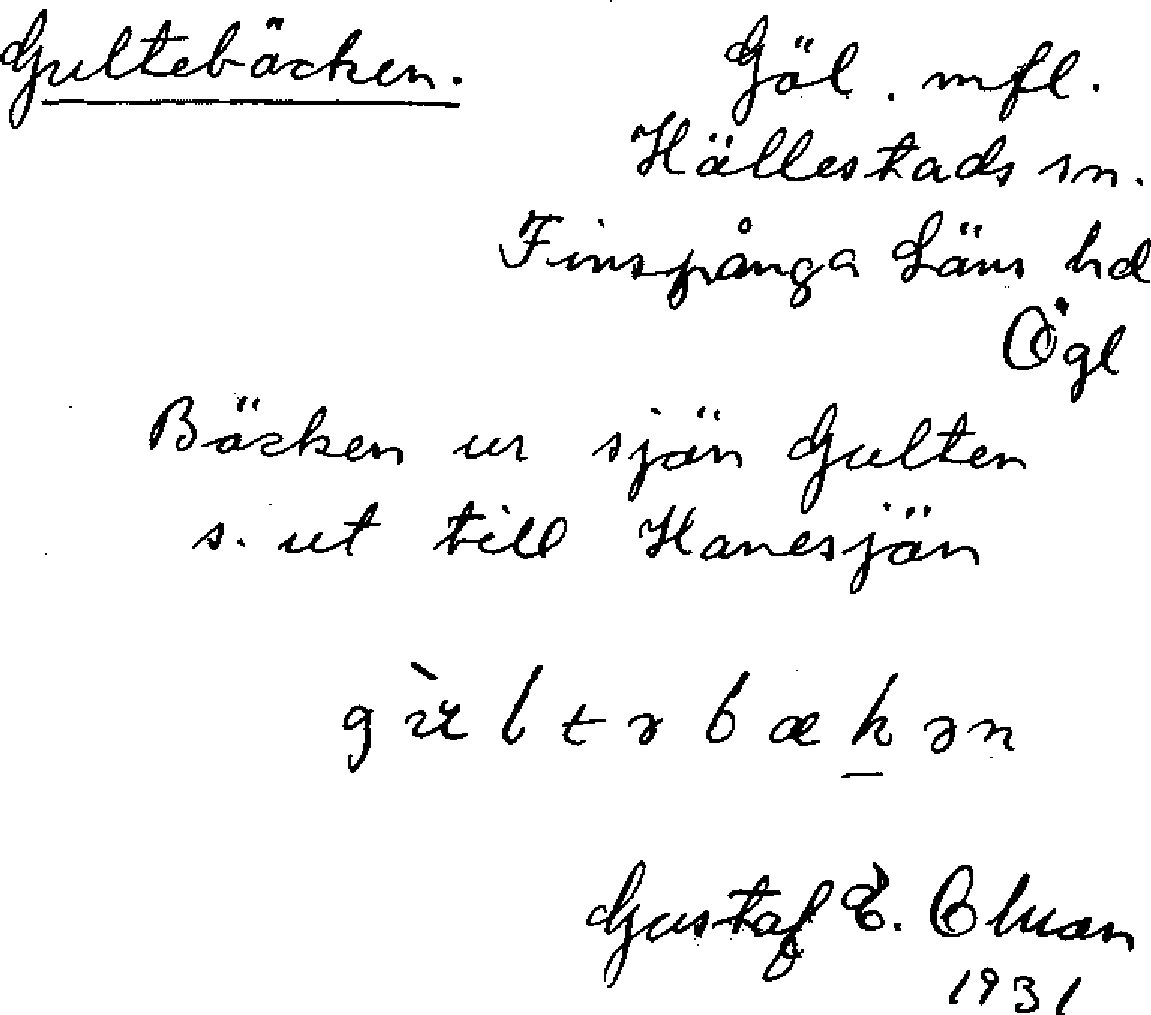 Gultebäcken.
Göl. mfl.
Hällestads sn.
Finspånga Läns hd
Ögl
Bäcken ur sjön Gulten
s. ut till Hanesjön
gùltəbækən
Gustaf E.
1931